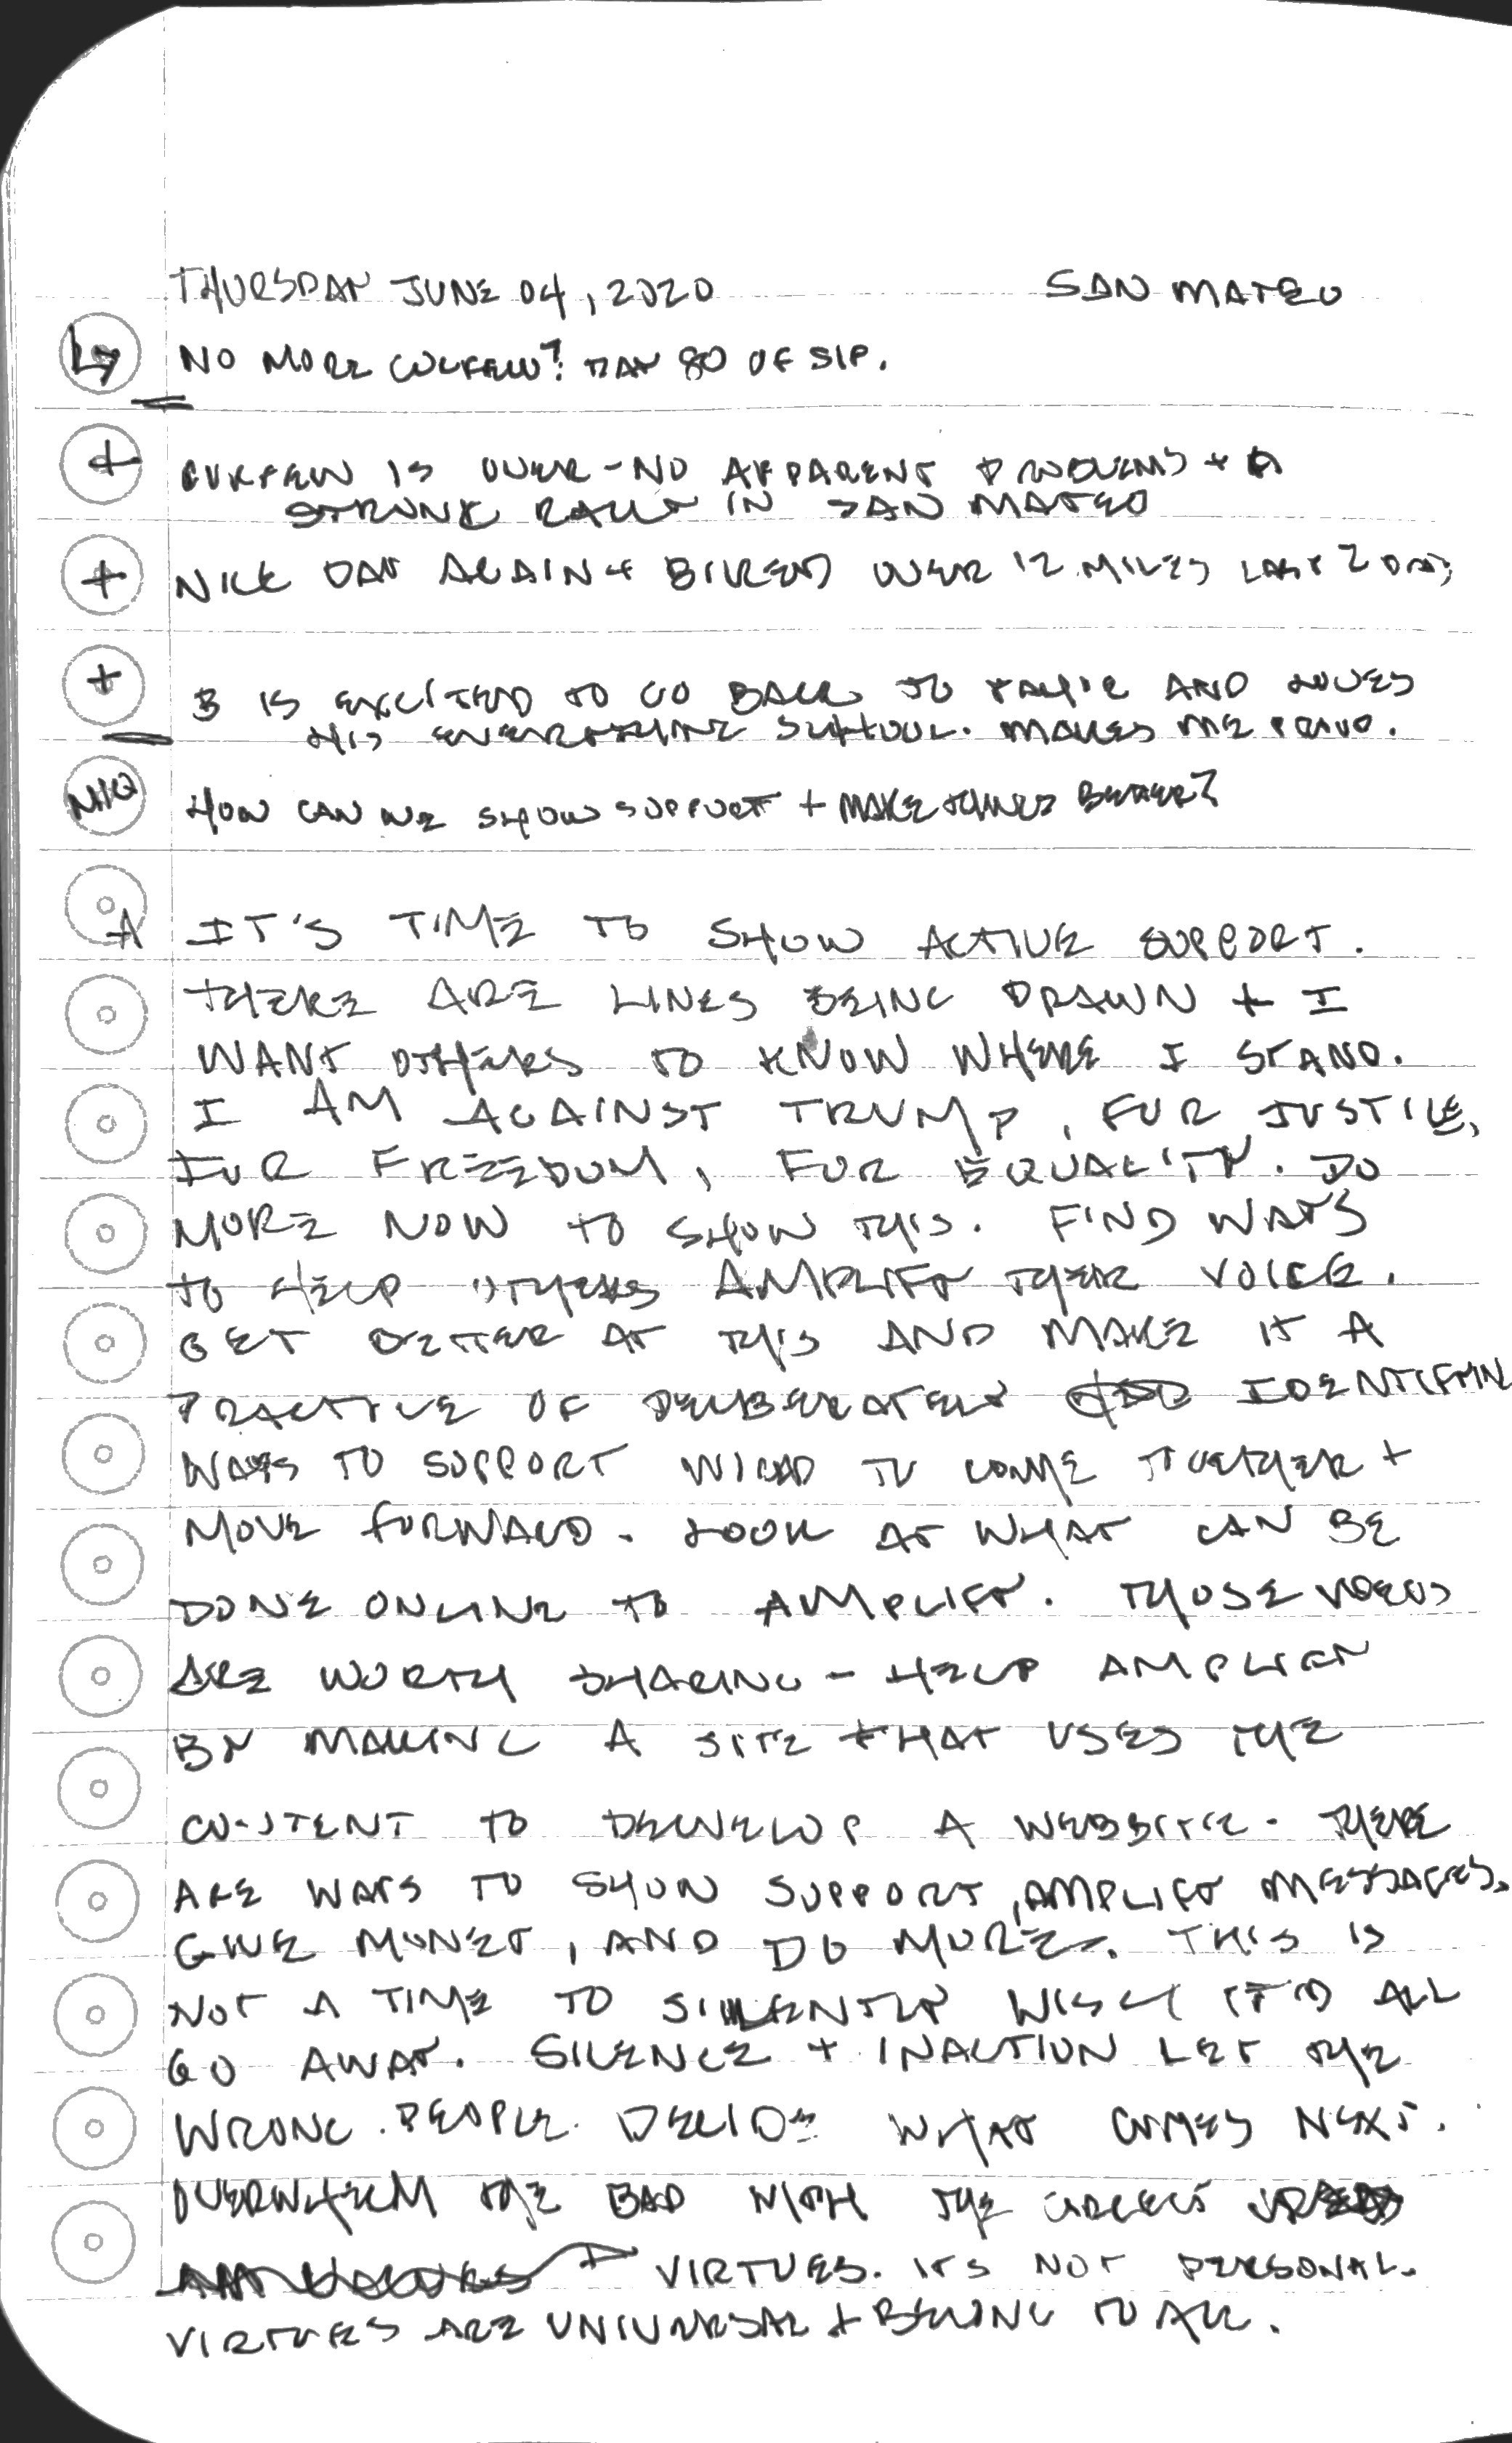 THURSDAY JUNE 04, 2020 SAN MATEO
NO MORE CURFEW? DAY 80 OF SIP.
+ CURFEW IS OVER - NO APPARENT PROBLEMS + A
STRONG RALLY IN SAN MATEO
+ NICE DAY AGAIN + BIKED OVER 12 MILES LAST 2 DAYS
+ B IS EXCITED TO GO BACK TO AND LOVES
HIS SCHOOL. MAKES ME PROUD.
HOW CAN WE SHOW SUPPORT + MAKE THINGS BETTER?
A IT'S TIME TO SHOW ACTIVE SUPPORT.
THERE ARE LINES BEING DRAWN + I
WANT OTHERS TO KNOW WHERE I STAND.
I AM AGAINST TRUMP, FOR JUSTICE,
FOR FREEDOM, FOR EQUALITY. DO
MORE NOW TO SHOW THIS. FIND WAYS
TO HELP OTHERS AMPLIFY THEIR VOICE.
GET BETTER AT THIS AND MAKE IT A
PRACTICE OF DELIBERATELY IDENTIFYIN
WAYS TO SUPPORT TO COME TOGETHER +
MOVE FORWARD. LOOK AT WHAT CAN BE
DONE ONLINE TO AMPLIFY. THOSE VIDEOS
ARE WORTH SHARING - HELP AMPLIFY
BY MAKING A SITE THAT USES THE
CONTENT TO DEVELOP A WEBSITE. THERE
ARE WAYS TO SHOW SUPPORT, AMPLIFY MESSAGES,
GIVE MONEY, AND DO MORE. THIS IS
NOT A TIME TO SILENTLY WISH IT'D ALL
GO AWAY. SILENCE + INACTION LET THE
WRONG PEOPLE DECIDE WHAT COMES NEXT.
OVERWHELM THE BAD WITH THE
VIRTUES. IT'S NOT PERSONAL.
VIRTUES ARE UNIVERSAL + BELONG TO ALL.